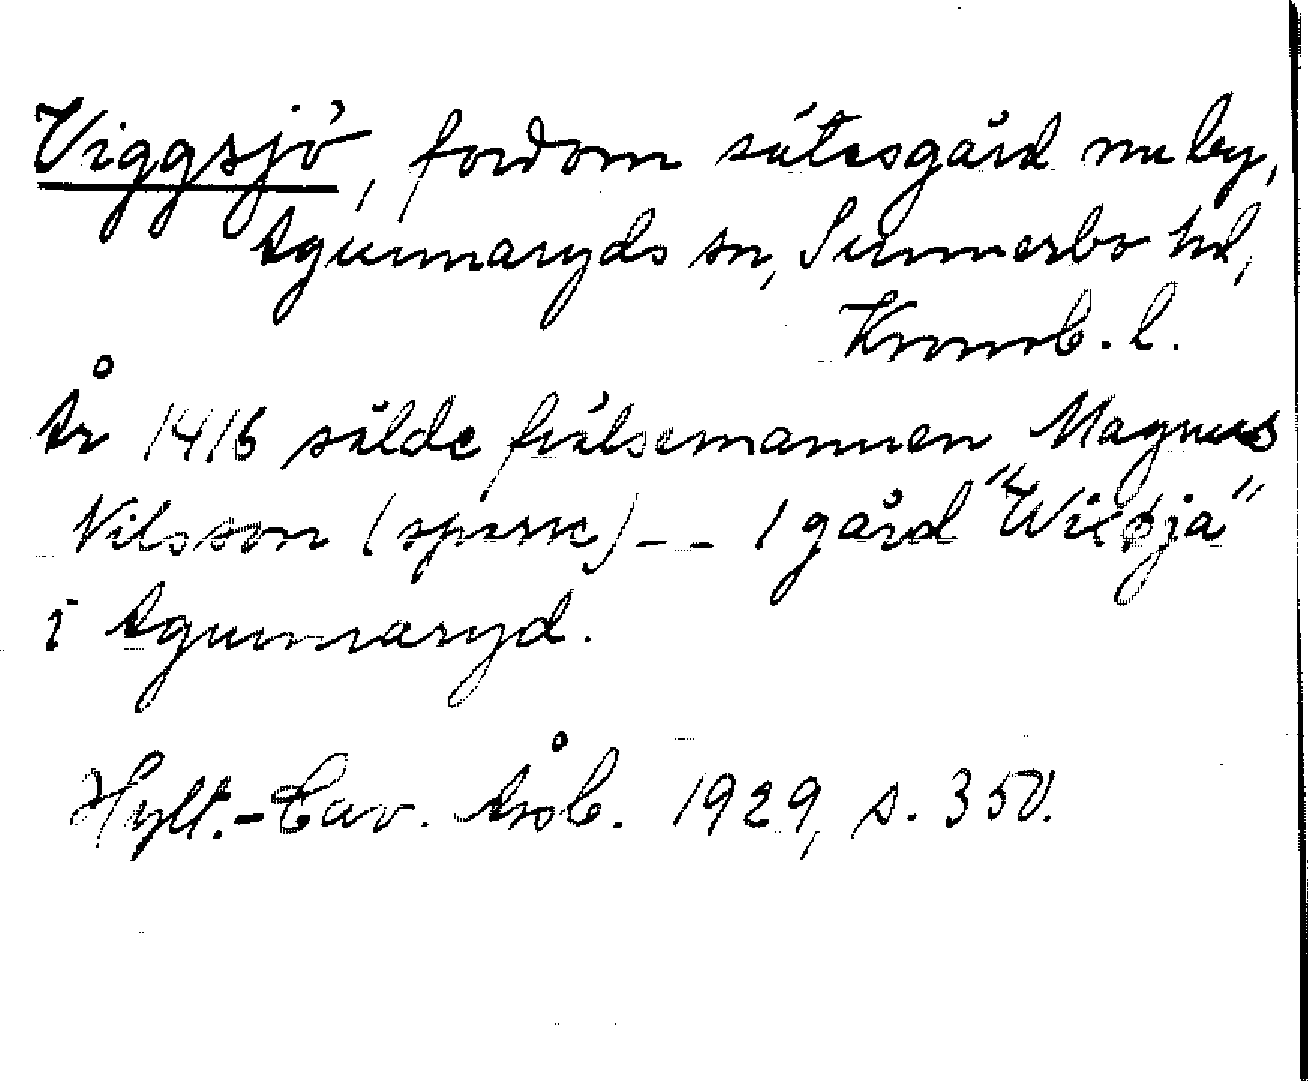 Viggsjö, fordom sätesgård nu by,
Agunnaryds sn, Sunnerbo hd,
Kronob. l.
År 1416 sålde frälsemannen Magnus
Nilsson (sparre) -- 1 gård "Wiksja"
i Agunnaryd.
Hylt.-Cav. Årsb. 1929, s. 350.